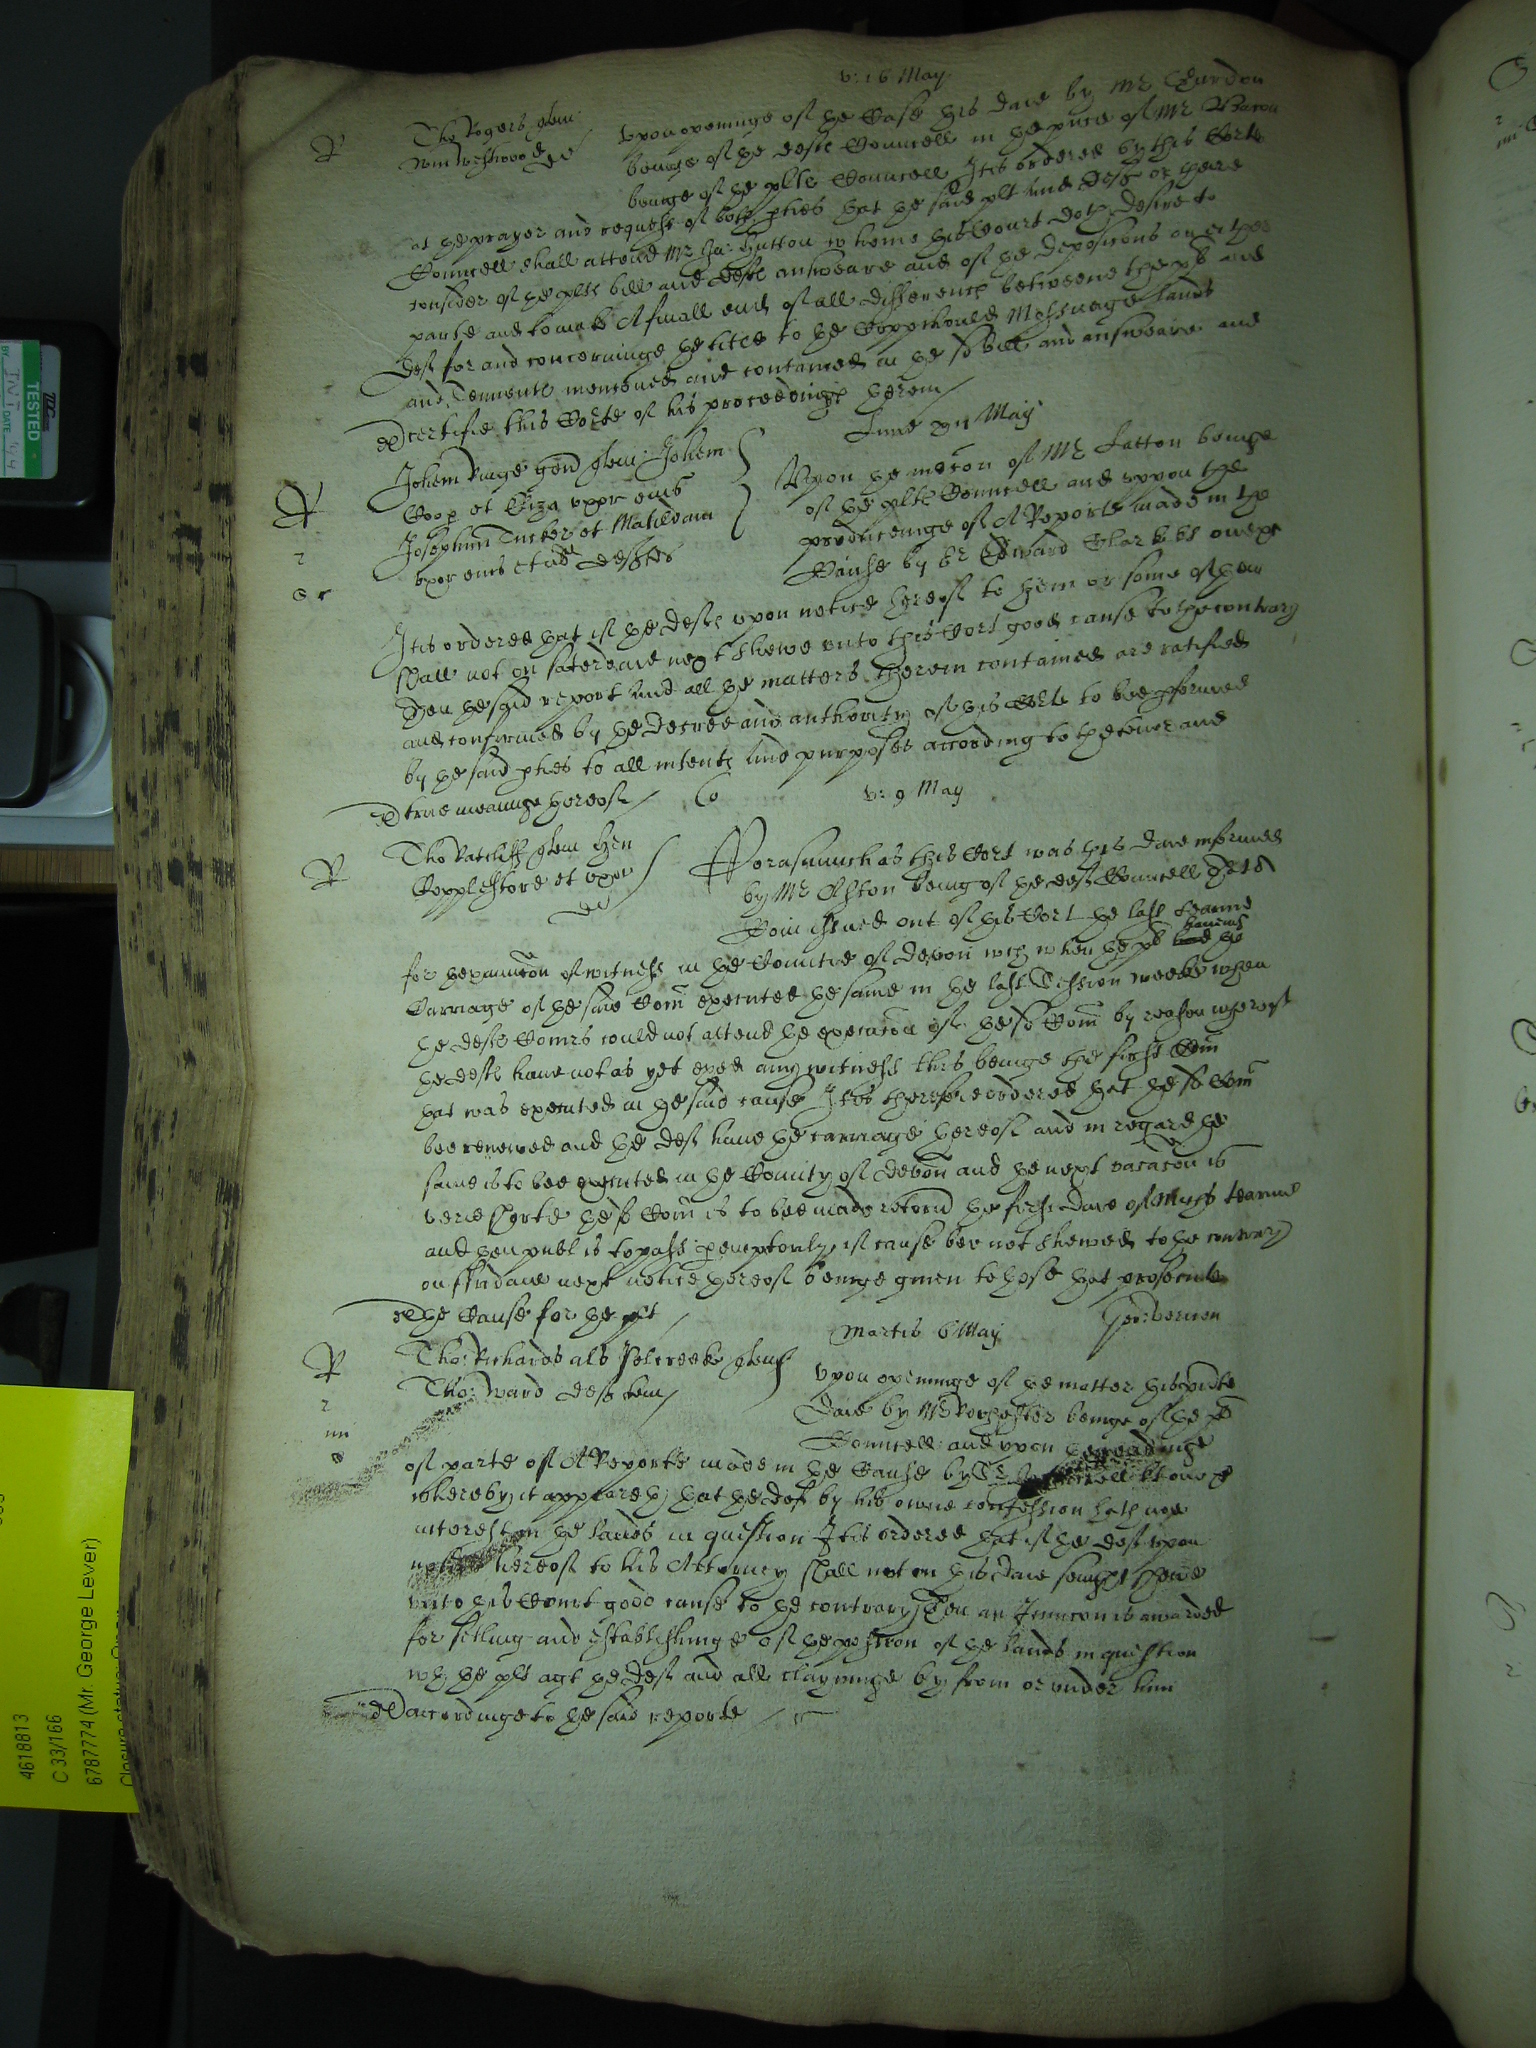 v: 16 May
R
Tho Rogers quer
Wm Westwood def
Upon openinge of the Cause this daie by Mr Gurdon
beinge of the defts Councell in the pnce of Mr Bacon
beinge of the plts Councell It is ordered by this Corte
at the prayer and request of both pties that the said plt and deft or theire
Councell shall attend Mr Ja: Hutton whome this Court doth desire to
consider of the plts bill and defts answeare and of the deposicons on either
parte and to make A finall end of all difference betweene the plt and
deft for and concerninge the title to the Coppihould Messuage Lands
and Tenements menconed and contained in the sd bill and answeare and
certifie this Corte of his proceedinge therein
Lune May
R
Johem Page gen quer Johem
Coop et Eliza uxor eius
Josephum Tucker et Matildam
uxor eius et defts
Upon the mocon of Mr Latton beinge
of the plts Councell and uppon the
producinge of A Reporte made in the
Cause by Sr Edward Clarke kt one
It is ordered that if the defts upon notice hereof to them or some of them
shall not on saterdaie next shewe unto this Cort good cause to the contrary
then the said report and all the matters therein contained are ratified
and confirmed by the decree and authority of this Corte to bee pformed
by the said pties to all intents and purposes according to the tenor and
true meaninge thereof
v: 9 May
R
Tho Ratcliff quer Hen
Copplestore et uxor
def
Forasmuch as this Cort was this daie informed
by Mr Ashton being of the defts Councell that A
Com issued out of this Cort the last tearme
for thexamicon of witness in the Countie of Devon wch when the plt haveing the
Carriage of the said Com executed the same in the last Session weeke when
the defts Comrs could not attend the execucon of the sd Com by reason whereof
the defts have not as yet exed any witness this beinge the first Com
that was executed in the said cause It is therefore ordered that the sd Com
bee renewed and the deft have the carriage thereof and in regard the
same is to bee executed in the County of Devon and the next vacacon is
verie shorte the sd Com is to bee made retorn the first daie of Michs tearme
and then publ is to passe peremptorily if cause bee not shewed to the contrary
on fridaie next notice hereof beinge given to those that prosecute
the Cause for the plt
Martis 6 May
Geo: Vernon
R
Tho: Richards als quer
Tho: Ward deft
Upon openinge of the matter this pnte
daie by Mr Rochester beinge of the plt
Councell and upon the readinge
of parte of A Reporte made in the Cause by Sr
whereby it appeareth that the deft by his owne confession hath noe
interest in the lands in question It is ordered that if the deft upon
notice hereof to his Attorney shall not on this daie sennight shewe
unto this Court good cause to the contrary then an Iniuncon is awarded
for setling and establishinge of the possession of the lands in question
wth the plt agt the deft and all clayminge by from or under him
accordinge to the said reporte
TESTED
BY
DATE
4618813
C 33/166
6787774 (Mr. George Lever)